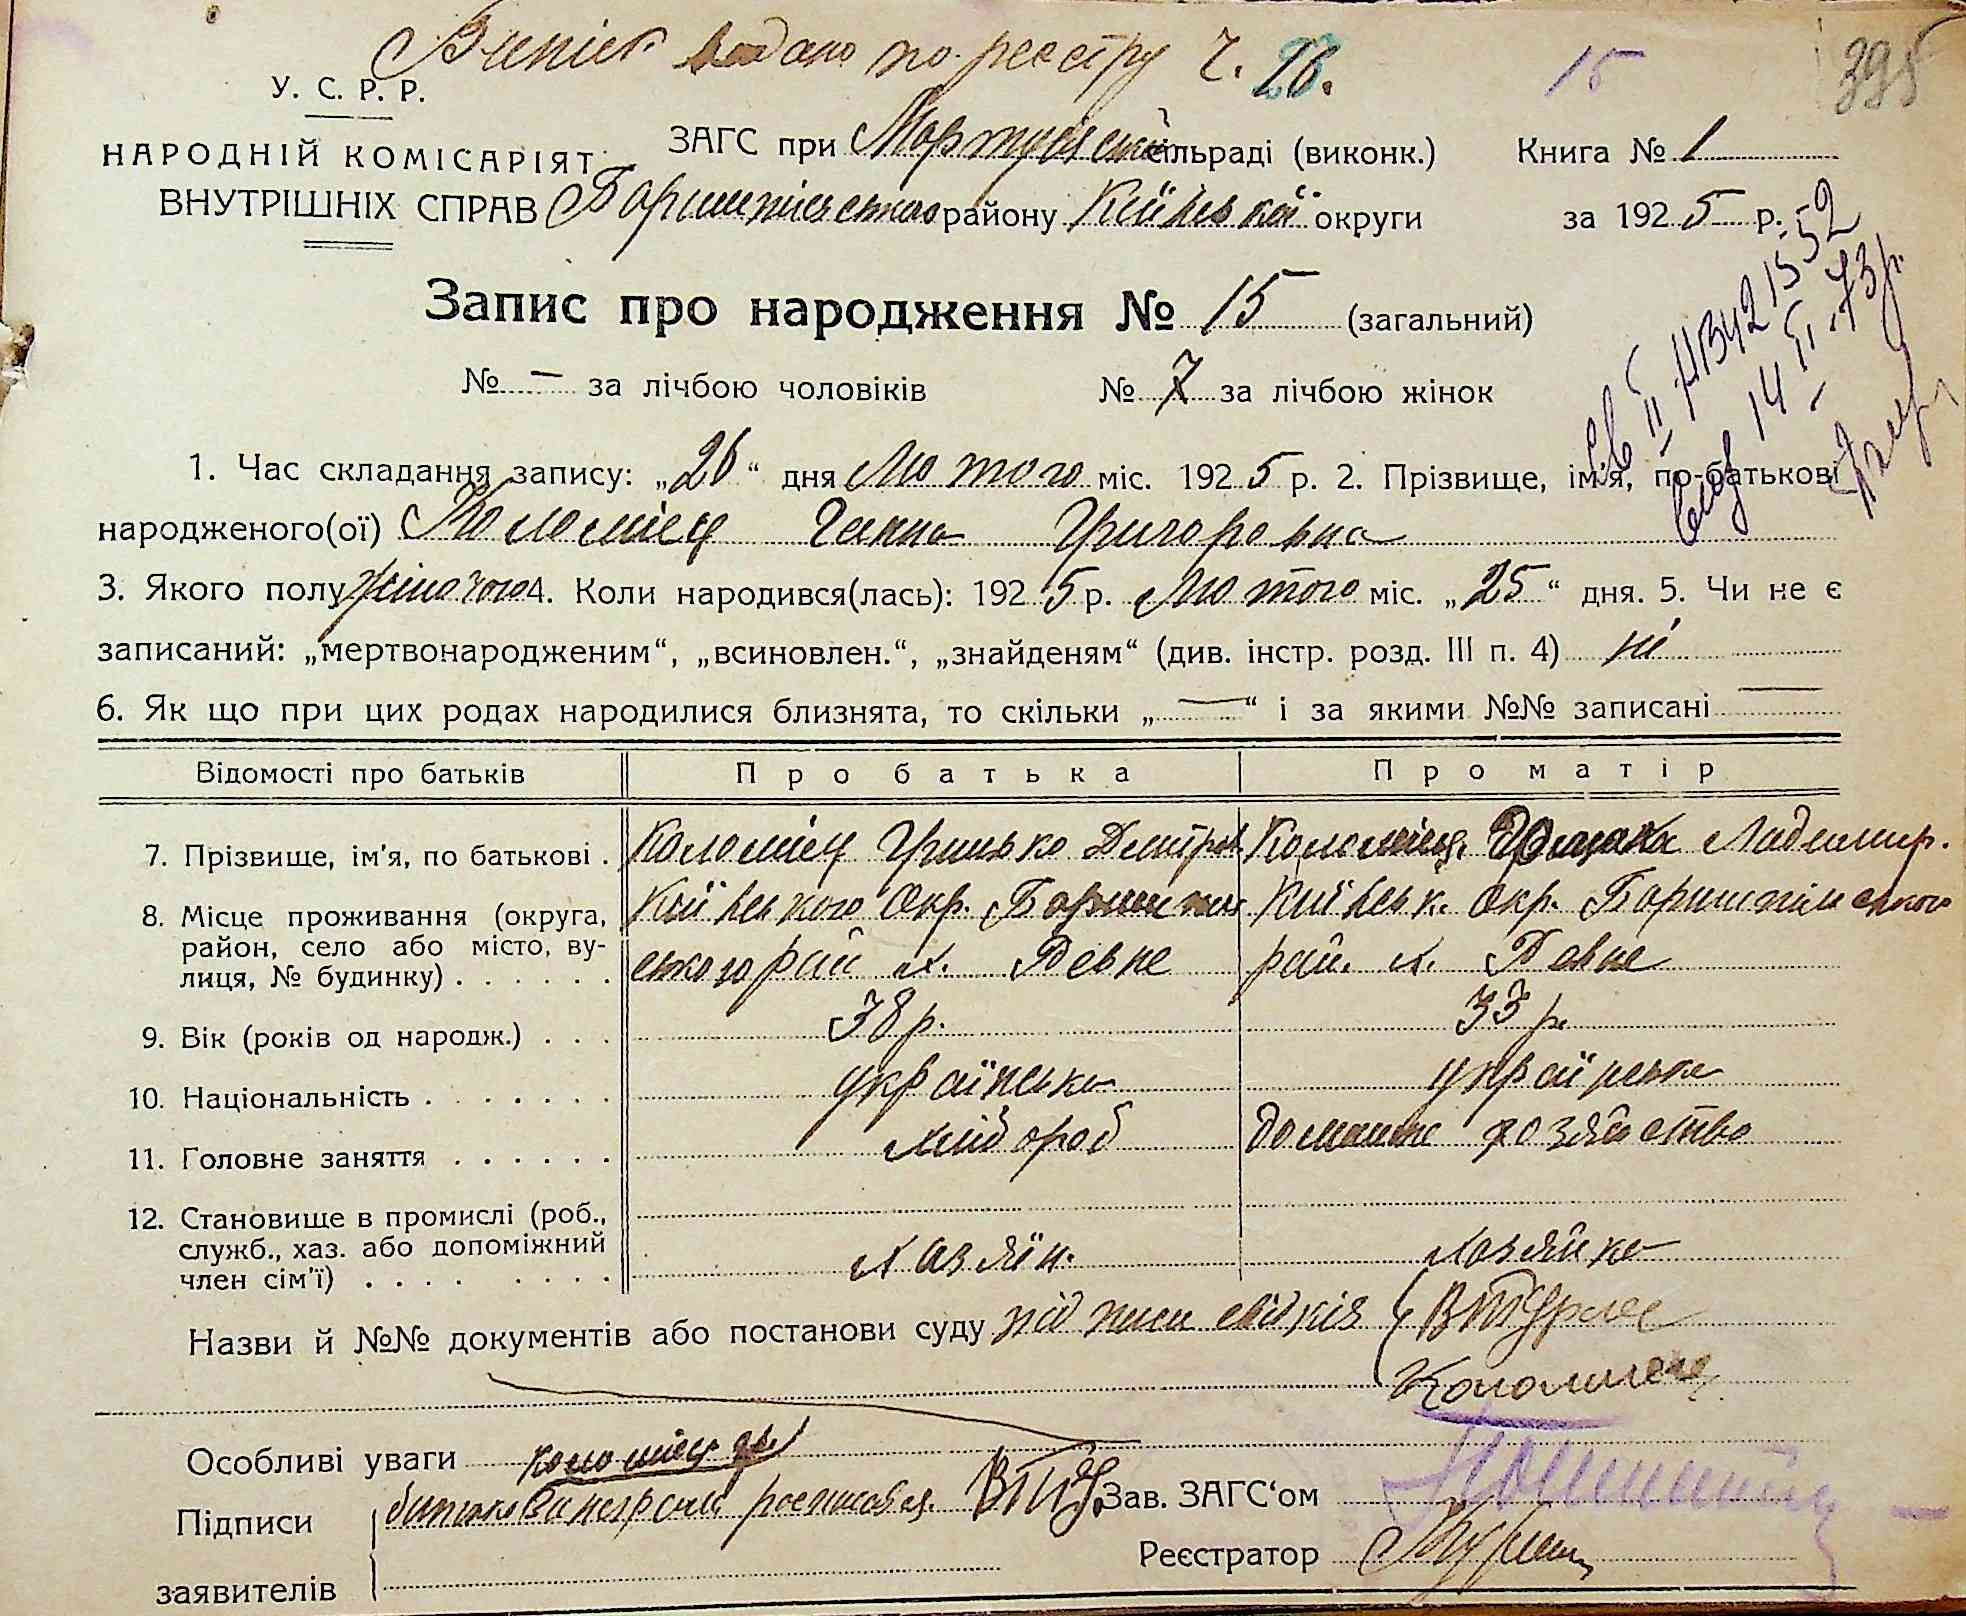 Випіск видано по реєстру Ч. 26.
15
395
У. С. Р. Р.
НАРОДНІЙ КОМІСАРІЯТ
ВНУТРІШНІХ СПРАВ
ЗАГС при Мартусівській сільраді (виконк.)
Бориспільського району Київської округи
Книга № 1
за 1925 р.
Запис про народження № 15 (загальний)
№ — за лічбою чоловіків № 7 за лічбою жінок
1. Час складання запису: „26“ дня Лютого міс. 1925 р. 2. Прізвище, ім'я, по-батькові
народженого(ої) Коломієц Ганна Григоровна
3. Якого полу жіночого 4. Коли народився(лась): 1925 р. Лютого міс. „25“ дня. 5. Чи не є
записаний: „мертвонародженим“, „всиновлен.“, „знайденям“ (див. інстр. розд. III п. 4) ні
6. Як що при цих родах народилися близнята, то скільки „—“ і за якими №№ записані —
Відомості про батьків Про батька Про матір
7. Прізвище, ім'я, по батькові . Коломієц Грицько Дмитров Коломієц Ладимир.
8. Місце проживання (округа, Київського Окр. Бориспіль Київськ. Окр. Бориспільського
район, село або місто, ву- ського рай х. Ревне рай. х. Ревне
лиця, № будинку) . . . . . .
9. Вік (років од народж.) . . . 38 р. 33 р.
10. Національність . . . . . . . українська українська
11. Головне заняття . . . . . . хлібороб домашнє хозяйство
12. Становище в промислі (роб.,
служб., хаз. або допоміжний хазяїн. хазяйка
член сім'ї) . . . . . . . .
Назви й №№ документів або постанови суду підписи свідків
Коломиец
Особливі уваги Коломієц
Підписи
заявителів
Зав. ЗАГС‘ом
Реєстратор
14 II-73 р.